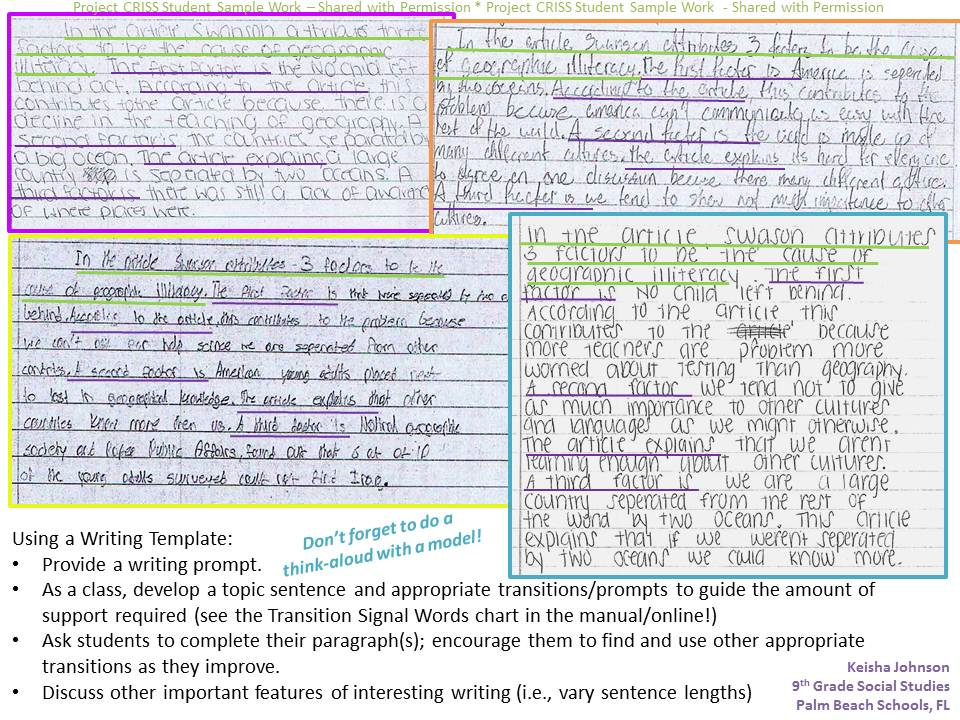 Project CRISS Student Sample Work – Shared with Permission * Project CRISS Student Sample Work - Shared with Permission
In the article, Swanson attributes three
factors to be the cause of geographic
illiteracy. The first factor is the No child left
behind act. According to the article this
contributes to the article because there is a
decline in the teaching of geography. A
second factor is the countries seperated by
a big ocean. The article explaing a large
country is seperated by two oceans. A
third factor is there was still a lack of aware
of where places were.
In the article, Swanson attributes 3 factors to be the cause
of geographic illiteracy. The first factor is America is seperated
by two oceans. According to the article, this contributes to the
problem becuse america can't communicate as easy with the
rest of the world. A second factor is the world is made up of
many different cultures. The article explains its hard for every one
to agree on one discussion becuse there many different culture.
A third fracter is we tend to show not much importence to other
cultures.
In the article Swanson attributes 3 factors to be the
cause of geographic illiteracy. The first factor is that were seperated by two o
behind. According to the article, this contributes to the problem because
we can't ask for help scince we are seperated from other
contries. A second factor is American young adults placed next
to last in geographical knowledge. The article explains that other
countries know more then us. A third factor is National geographic
society and Roper Public Affairs, found out that 6 out of 10
of the young adults surveyed could not find Iraq.
In the article, Swason attributes
3 factors to be the cause of
geographic illiteracy. The first
factor is No child left behind.
According to the article this
contributes to the because
more teachers are problem more
worried about testing than geography.
A second factor we tend not to give
as much importance to other cultures
and languages as we might otherwise.
The article explains that we arent
learning enough about other cultures.
A third factor is we are a large
country seperated from the rest of
the word by two oceans. This article
explains that if we werent seperated
by two oceans we could know more.
Using a Writing Template:
Don't forget to do a
think-aloud with a model!
• Provide a writing prompt.
• As a class, develop a topic sentence and appropriate transitions/prompts to guide the amount of
support required (see the Transition Signal Words chart in the manual/online!)
• Ask students to complete their paragraph(s); encourage them to find and use other appropriate
transitions as they improve.
• Discuss other important features of interesting writing (i.e., vary sentence lengths)
Keisha Johnson
9th Grade Social Studies
Palm Beach Schools, FL